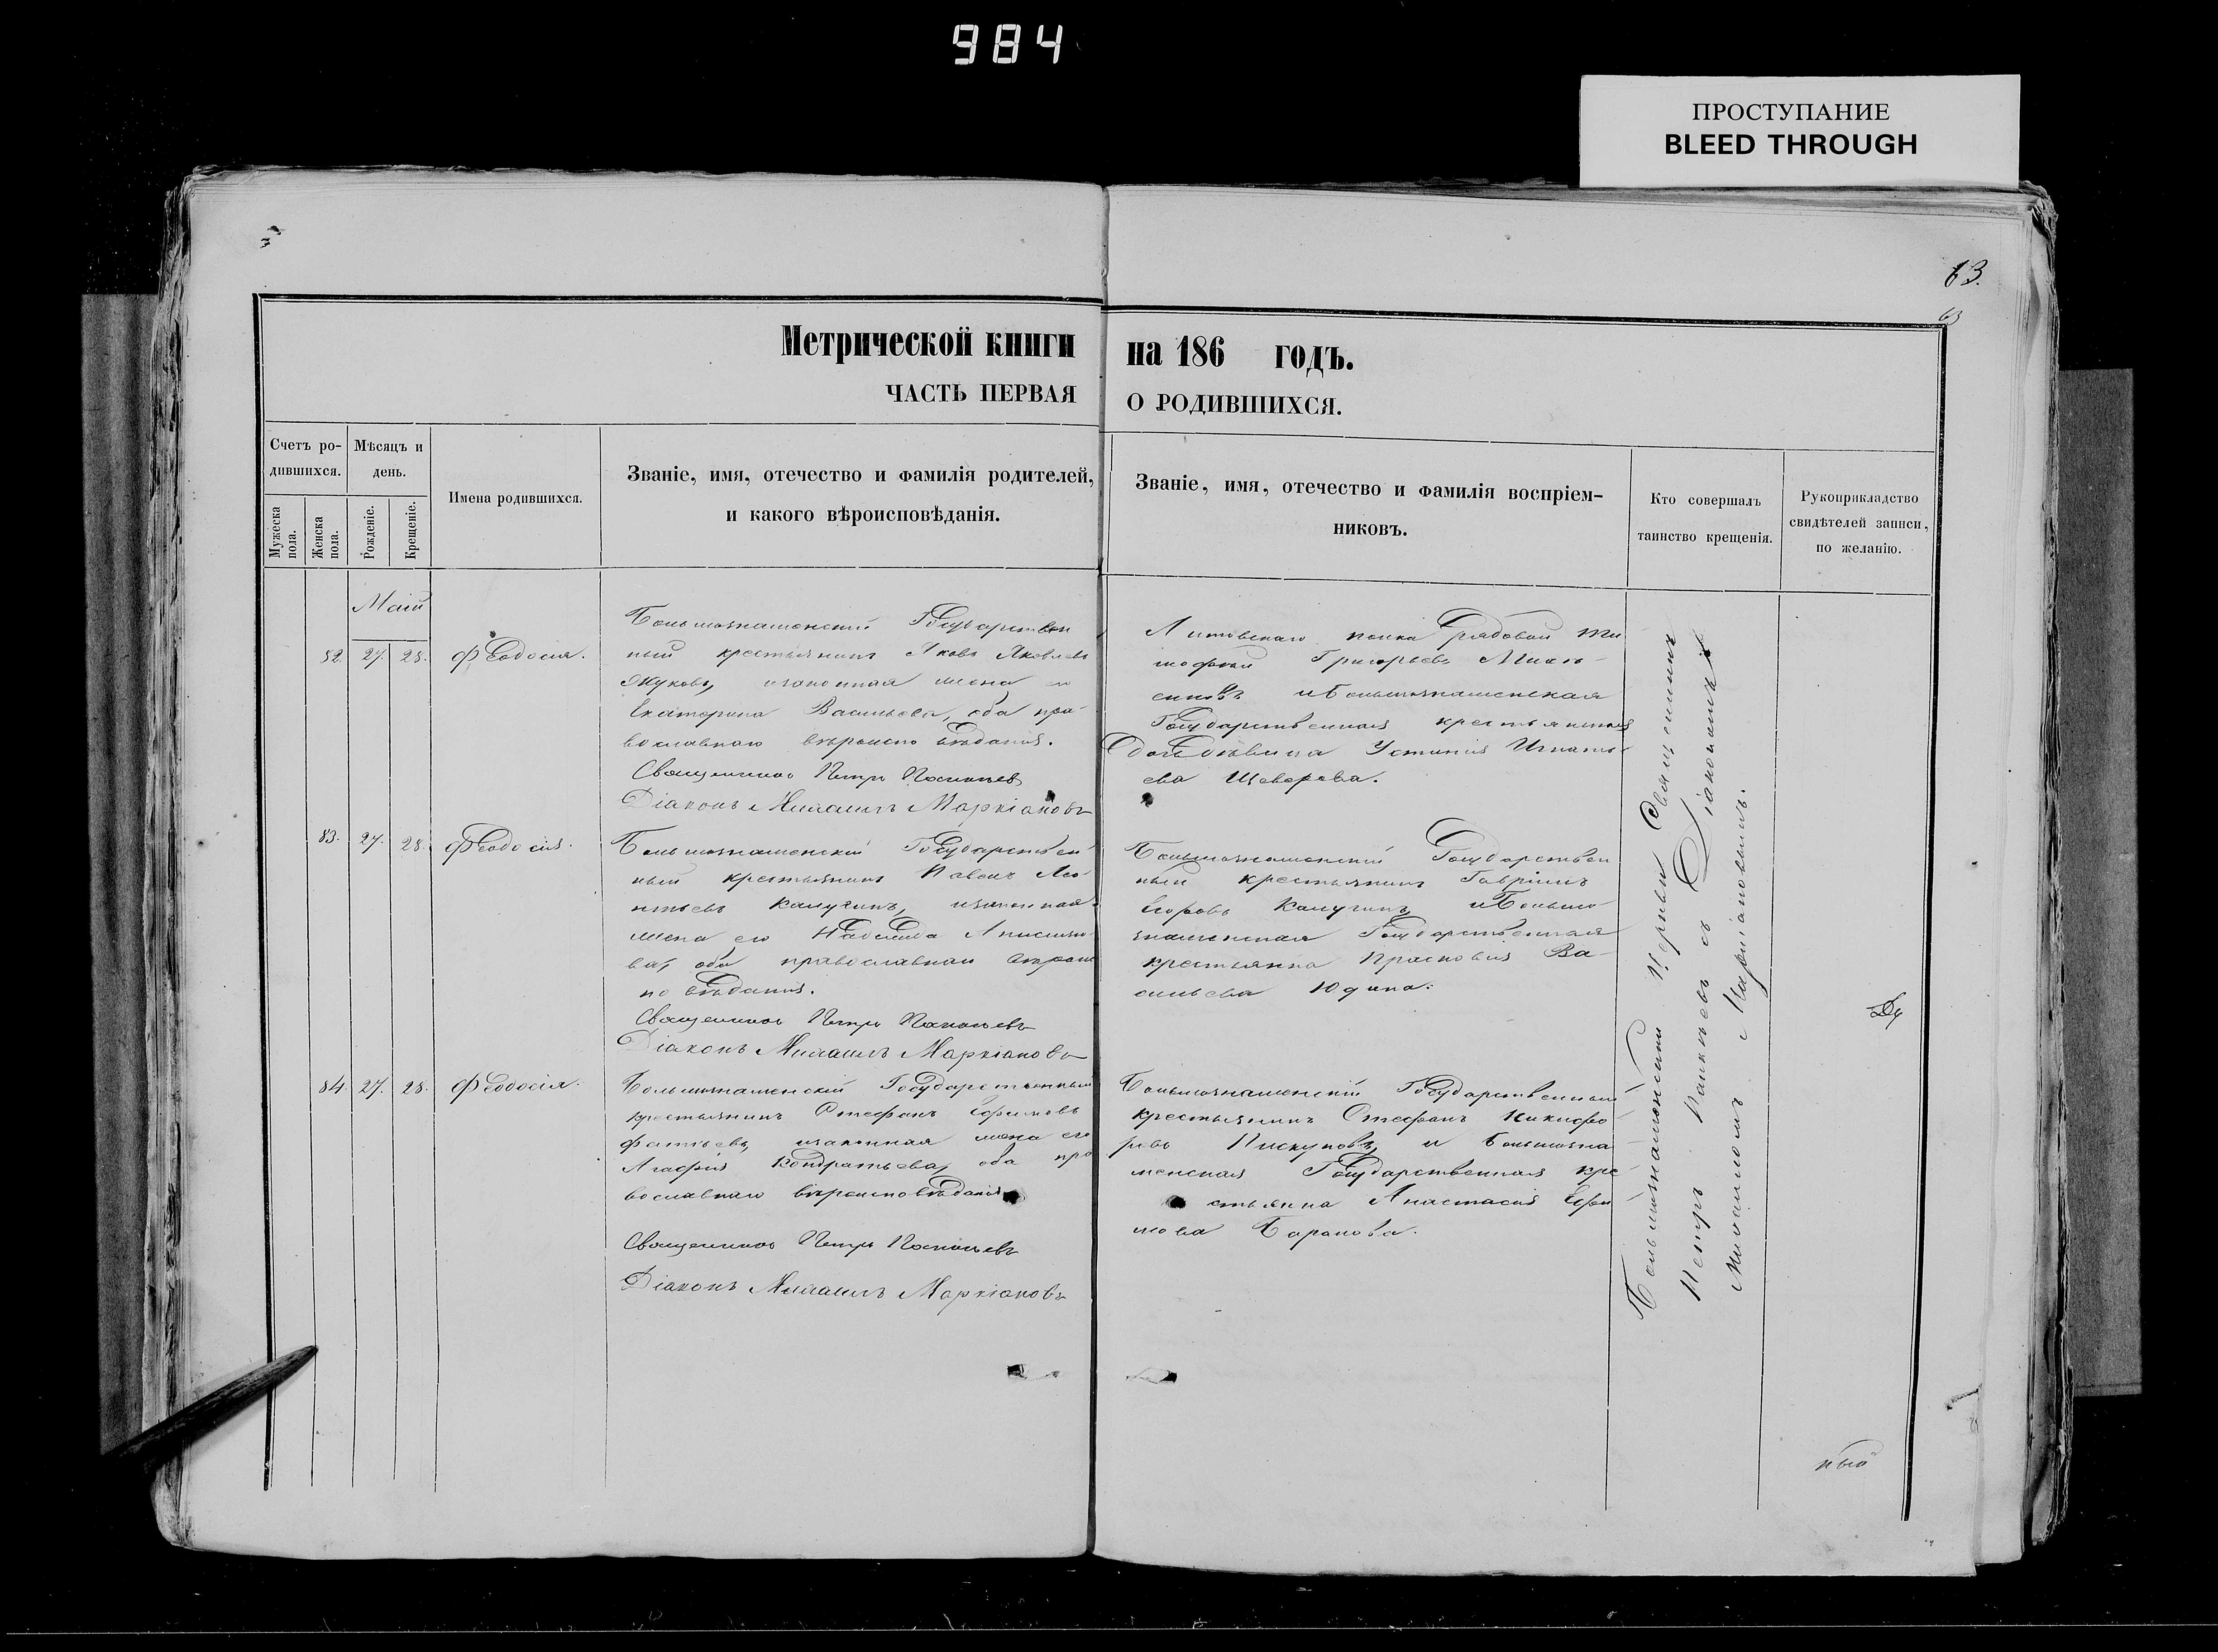 984
ПРОСТУПАНИЕ
BLEED THROUGH
63.
63
Метрической книги на 186 годъ.
ЧАСТЬ ПЕРВАЯ О РОДИВШИХСЯ.
Счетъ ро-
дившихся.
Мужеска
пола.
Женска
пола.
Мѣсяцъ и
день.
Рожденіе.
Крещеніе.
Имена родившихся.
Званіе, имя, отечество и фамилія родителей,
и какого вѣроисповѣданія.
Званіе, имя, отечество и фамилія воспріем-
никовъ.
Кто совершалъ
таинство крещенія.
Рукоприкладство
свидѣтелей записи,
по желанію.
Маій
82. 27. 28. Феодосія.
Большезнаменскій Государствен
ный крестьянинъ Яковъ Яковлевъ
Жуковъ, изаконная жена его
Екатерина Васильева, оба пра-
вославнаго вѣроиспо вѣданія.
Священникъ Петръ
Діаконъ Михаилъ Маркіановъ
Литовскаго полка рядовой Ти
мофей Григорьевъ
иБольшезнаменская
Государственная крестьянская
Устинія Игнать-
ева
83. 27. 28. Феодосія.
Большезнаменскій Государствен
ный крестьянинъ Павелъ Лео-
нтьевъ Калугинъ, изаконная
жена его Надежда Анисимо-
ва, оба православнаго вѣроис
по вѣданія.
Священникъ Петръ
Діаконъ Михаилъ Маркіановъ
Большезнаменскій Государствен
ный крестьянинъ Гавріилъ
Егоровъ Калугинъ, иБольше-
знаменская Государственная
крестьянка Прасковія Ва-
сильева Юдина.
84. 27. 28. Феодосія.
Большезнаменскій Государственный
крестьянинъ Стефанъ Ефимовъ
Фатѣевъ, изаконная жена его
Агафія Кондратьева, оба пра
вославнаго вѣроисповѣданія
Священникъ Петръ
Діаконъ Михаилъ Маркіановъ
Большезнаменскій Государственный
крестьянинъ Стефанъ Никифо-
ровъ Пискуновъ, и Большезна-
менская Государственная кре
стьянка Анастасія Ефи
мова Баранова.
Большезнаменской Церкви Священникъ
Петръ съ Діакономъ
Михаиломъ Маркіановымъ.
ный